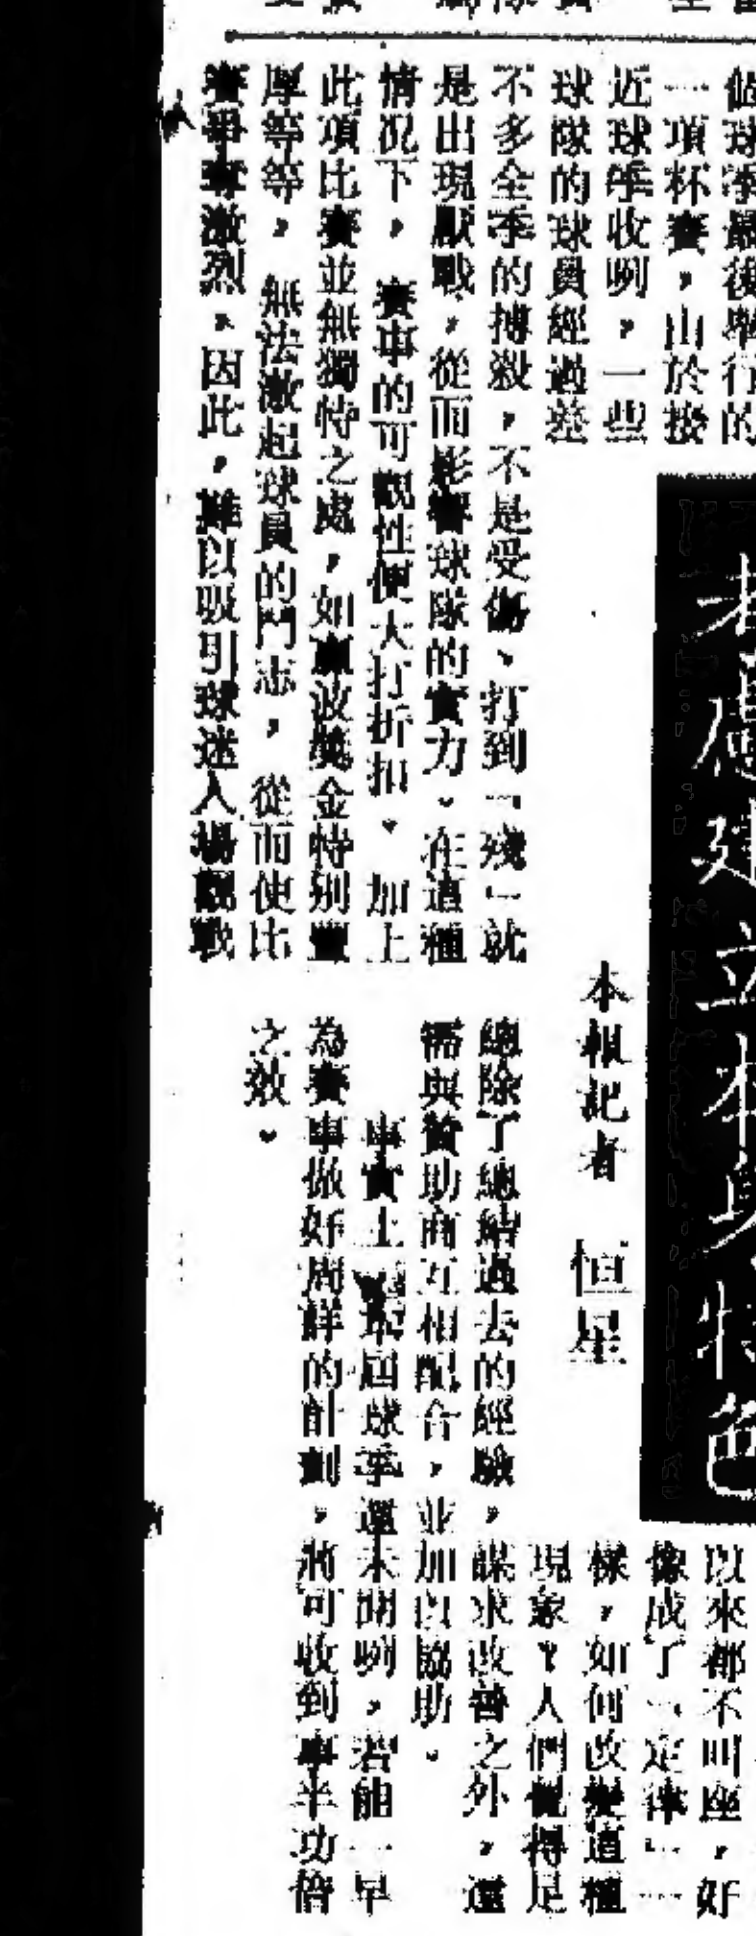 個球季最後舉行的
一項杯賽，由於接
近球季收咧，一些
球隊的球員經過差
不多全季的搏殺，不是受傷、打到「殘」就
是出現厭戰，從而影響球隊的實力。在這種
情况下，賽事的可觀性便大打折扣。加上
此項比賽並無獨特之處，如贏波獎金特別豐
厚等等，無法激起球員的鬥志，從而使比
賽爭奪激烈。因此，難以吸引球迷入場觀戰
考慮建立本身特色
本報記者 恒星
以來都不叫座，好
像成了「定律」一
樣，如何改變這種
現象？人們覺得足
總除了總結過去的經驗，謀求改善之外，還
需與贊助商互相配合，並加以協助。
事實上，本屆球季還未開咧，若能一早
為賽事做好周詳的計劃，將可收到事半功倍
之效。